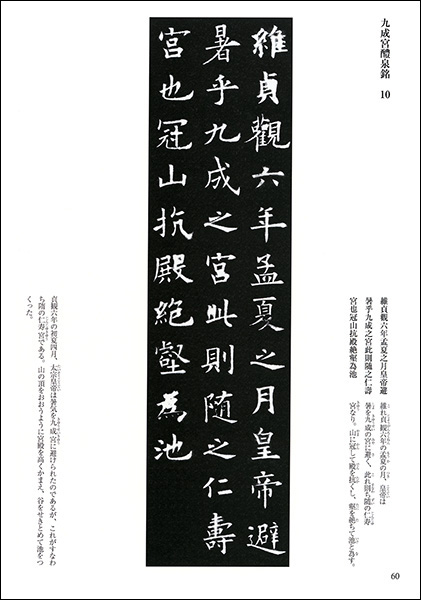 九成宮醴泉銘 10
維貞觀六年孟夏之月皇帝避
暑乎九成之宮此則隨之仁壽
宮也冠山抗殿絶壑為池
維れ貞觀六年の孟夏の月、皇帝は
暑を九成の宮に避く、此れ則ち隨の仁壽
宮なり。山に冠して殿を抗くし、壑を絶ちて池と為す。
維貞觀六年孟夏之月皇帝避
暑乎九成之宮此則隨之仁壽
宮也冠山抗殿絶壑為池
貞観六年の初夏四月、太宗皇帝は暑気を九成宮に避けられたのであるが、これがすなわ
ち隋の仁寿宮である。山の頂をおおうように宮殿を高くかまえ、谷をせきとめて池をつ
くった。
60